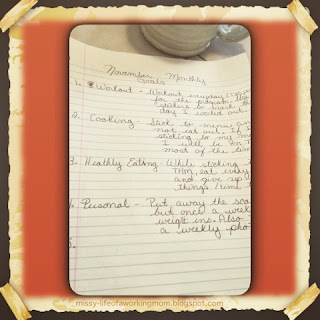 November Monthly
Goals
1. Workout - Workout everyday
for the program. Also
stickers to mark the
day I worked out.
2. Cooking - Stick to menu and
not eat out. If I
sticking to my me
I will be my
most of the time
3. Heathly Eating - While sticking
THM, eat every
and give up
things / limi
4. Personal - Put away the sca
but once a week
weigh ins. Also
a weekly pho
5.
missy-lifeofaworkingmom.blogspot.com